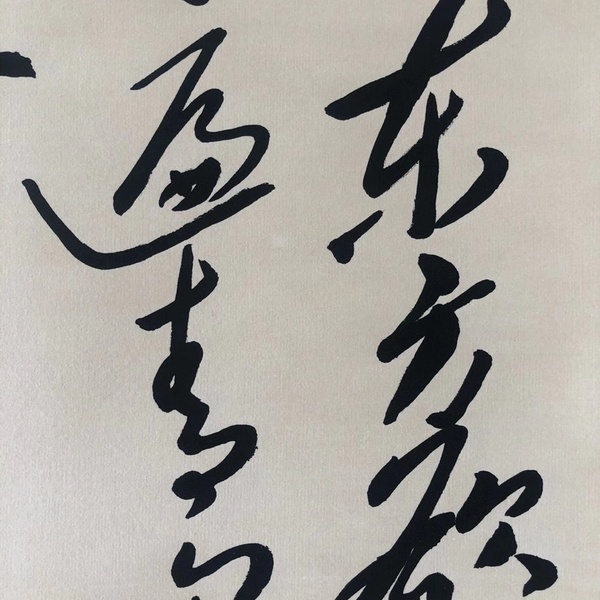 东方欲
遍青